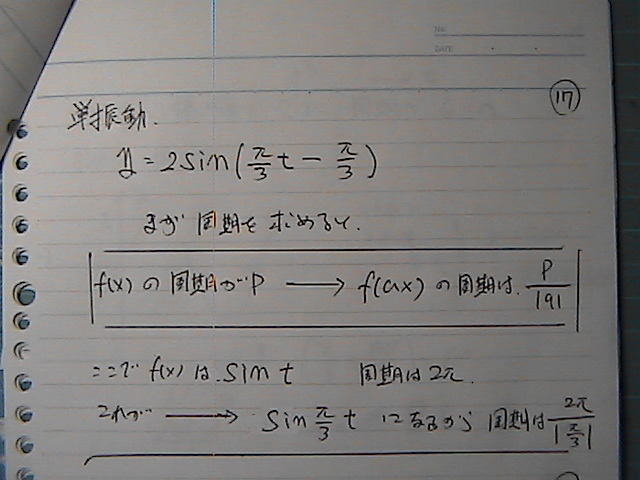 No.
DATE
17
単振動.
y = 2sin(π/3 t − π/3)
まず 周期を求めると.
f(x) の周期が P → f(ax) の周期は. P/|a|
ここで f(x) は sin t 周期は 2π.
これが → sin π/3 t になるから 周期は 2π/|π/3|